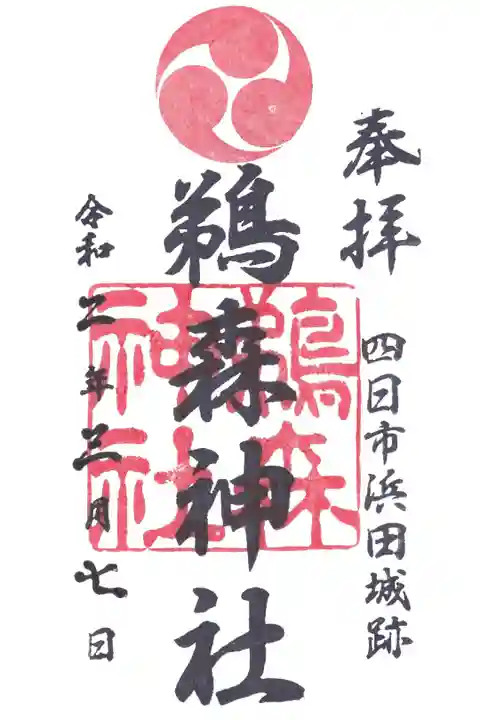 奉拝
四日市浜田城跡
鵜森神社
鵜森
神社
令和二年三月七日